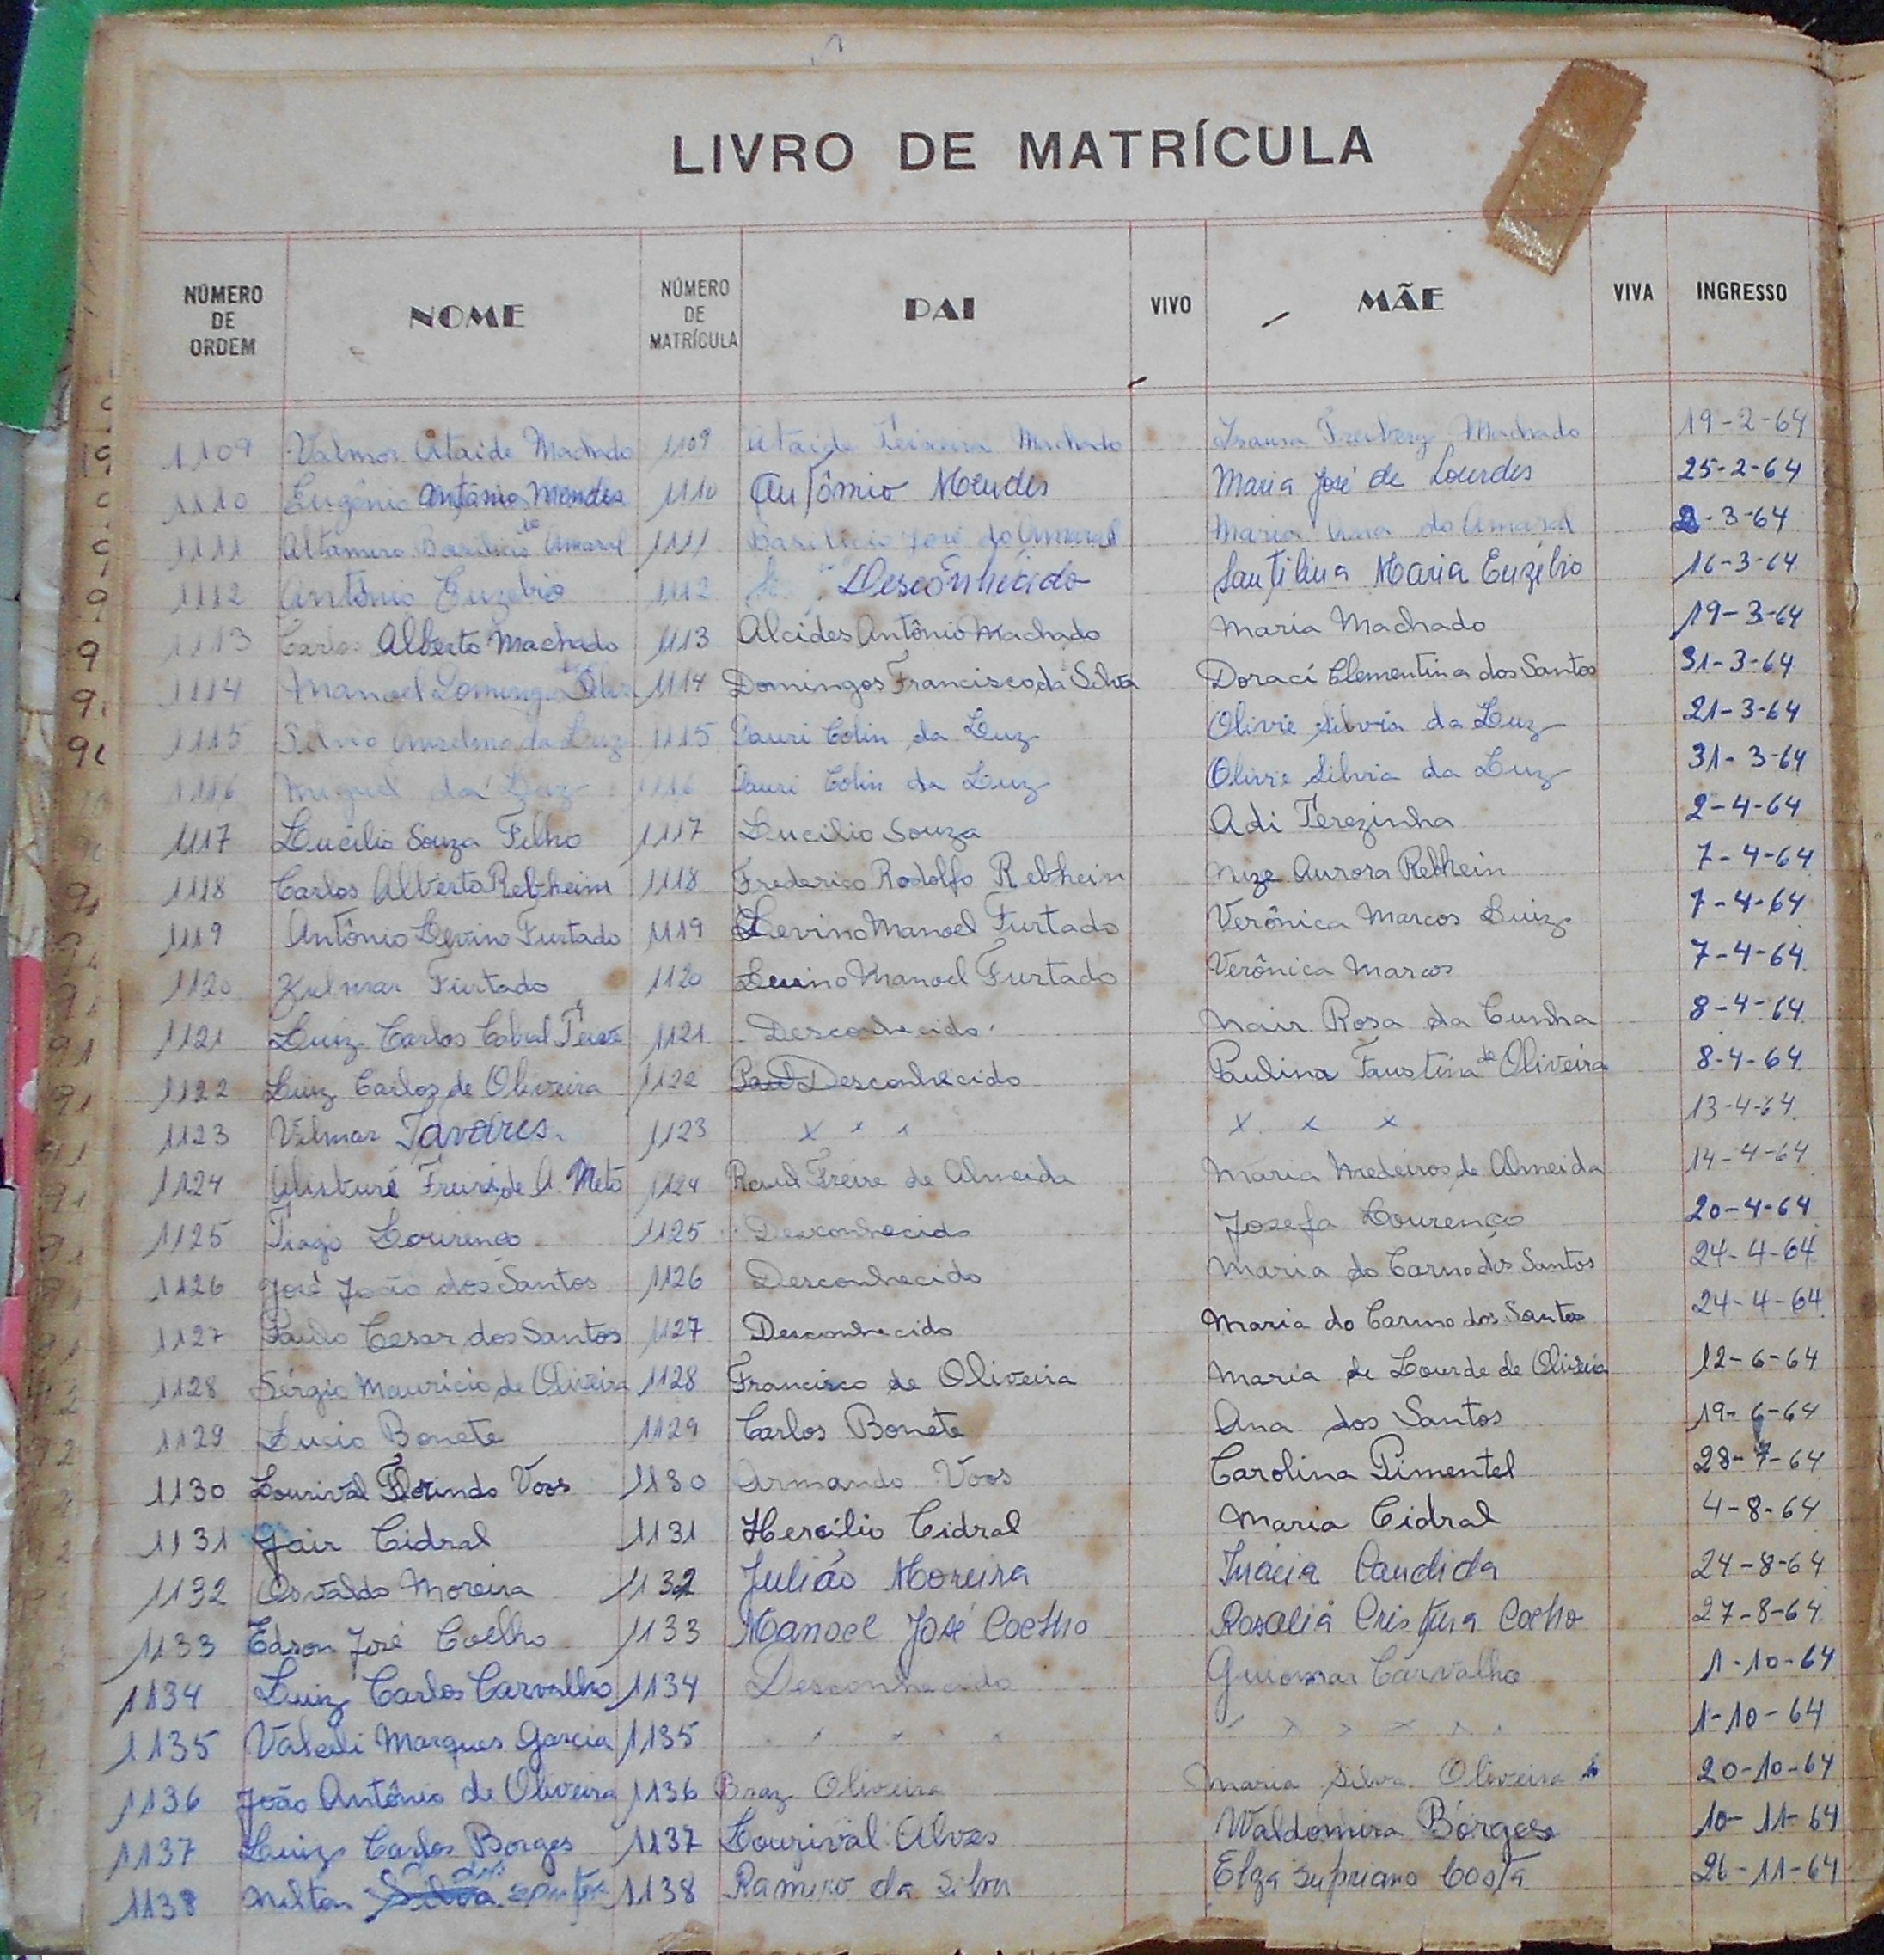 LIVRO DE MATRÍCULA
NÚMERO DE ORDEM NOME NÚMERO DE MATRÍCULA PAI VIVO MÃE VIVA INGRESSO
1109 Valmor Ataide Machado 1109 Ataide Teixeira Machado Machado 19-2-64
1110 Eugênio Antônio Mendes 1110 Antônio Mendes Maria José de Lourdes 25-2-64
1111 Altamiro Basilicio do Amaral 1111 Basilicio José do Amaral Maria Ana do Amaral 2-3-64
1112 Antônio Euzebio 1112 Desconhecido Santilina Maria Euzébio 16-3-64
1113 Carlos Alberto Machado 1113 Alcides Antônio Machado Maria Machado 19-3-64
1114 Manoel Domingos 1114 Domingos Francisco da Silva Doraci Clementina dos Santos 31-3-64
1115 Silvio Anselmo da Luz 1115 Pauri Colin da Luz Olivie Silvia da Luz 21-3-64
1116 Miguel da Luz 1116 Pauri Colin da Luz Olivie Silvia da Luz 31-3-64
1117 Lucilio Souza Filho 1117 Lucilio Souza Adi Terezinha 2-4-64
1118 Carlos Alberto Rebhein 1118 Frederico Rodolfo Rebhein Nize Aurora Rebhein 7-4-64
1119 Antônio Levino Furtado 1119 Levino Manoel Furtado Verônica Marcos Luiz 7-4-64
1120 Zulmar Furtado 1120 Levino Manoel Furtado Verônica Marcos 7-4-64
1121 Luiz Carlos Cabral 1121 Desconhecido Nair Rosa da Cunha 8-4-64
1122 Luiz Carlos de Oliveira 1122 Desconhecido Paulina Faustina de Oliveira 8-4-64
1123 Vilmar Tavares. 1123 x x x x x x 13-4-64
1124 Freire de A. Neto 1124 Raul Freire de Almeida Maria Medeiros de Almeida 14-4-64
1125 Tiago Lourenço 1125 Desconhecido Josefa Lourenço 20-4-64
1126 José João dos Santos 1126 Desconhecido Maria do Carmo dos Santos 24-4-64
1127 Paulo Cesar dos Santos 1127 Desconhecido Maria do Carmo dos Santos 24-4-64
1128 Sérgio Mauricio de Oliveira 1128 Francisco de Oliveira Maria de Lourde de Oliveira 12-6-64
1129 Lucio Bonete 1129 Carlos Bonete Ana dos Santos 19-6-64
1130 Lourival Florindo Voos 1130 Armando Voos Carolina Pimentel 28-7-64
1131 Jair Cidral 1131 Hercílio Cidral Maria Cidral 4-8-64
1132 Osvaldo Moreira 1132 Julião Moreira Inácia Candida 24-8-64
1133 Edson José Coelho 1133 Manoel José Coelho Rosalia Cristina Coelho 27-8-64
1134 Luiz Carlos Carvalho 1134 Desconhecido Guiomar Carvalho 1-10-64
1135 Valedi Marques Garcia 1135 1-10-64
1136 João Antônio de Oliveira 1136 Braz Oliveira Maria Silva Oliveira 20-10-64
1137 Luiz Carlos Borges 1137 Lourival Alves Waldomira Borges 10-11-64
1138 Nilton Silva dos Santos 1138 Ramiro da Silva Elza Supriano Costa 26-11-64